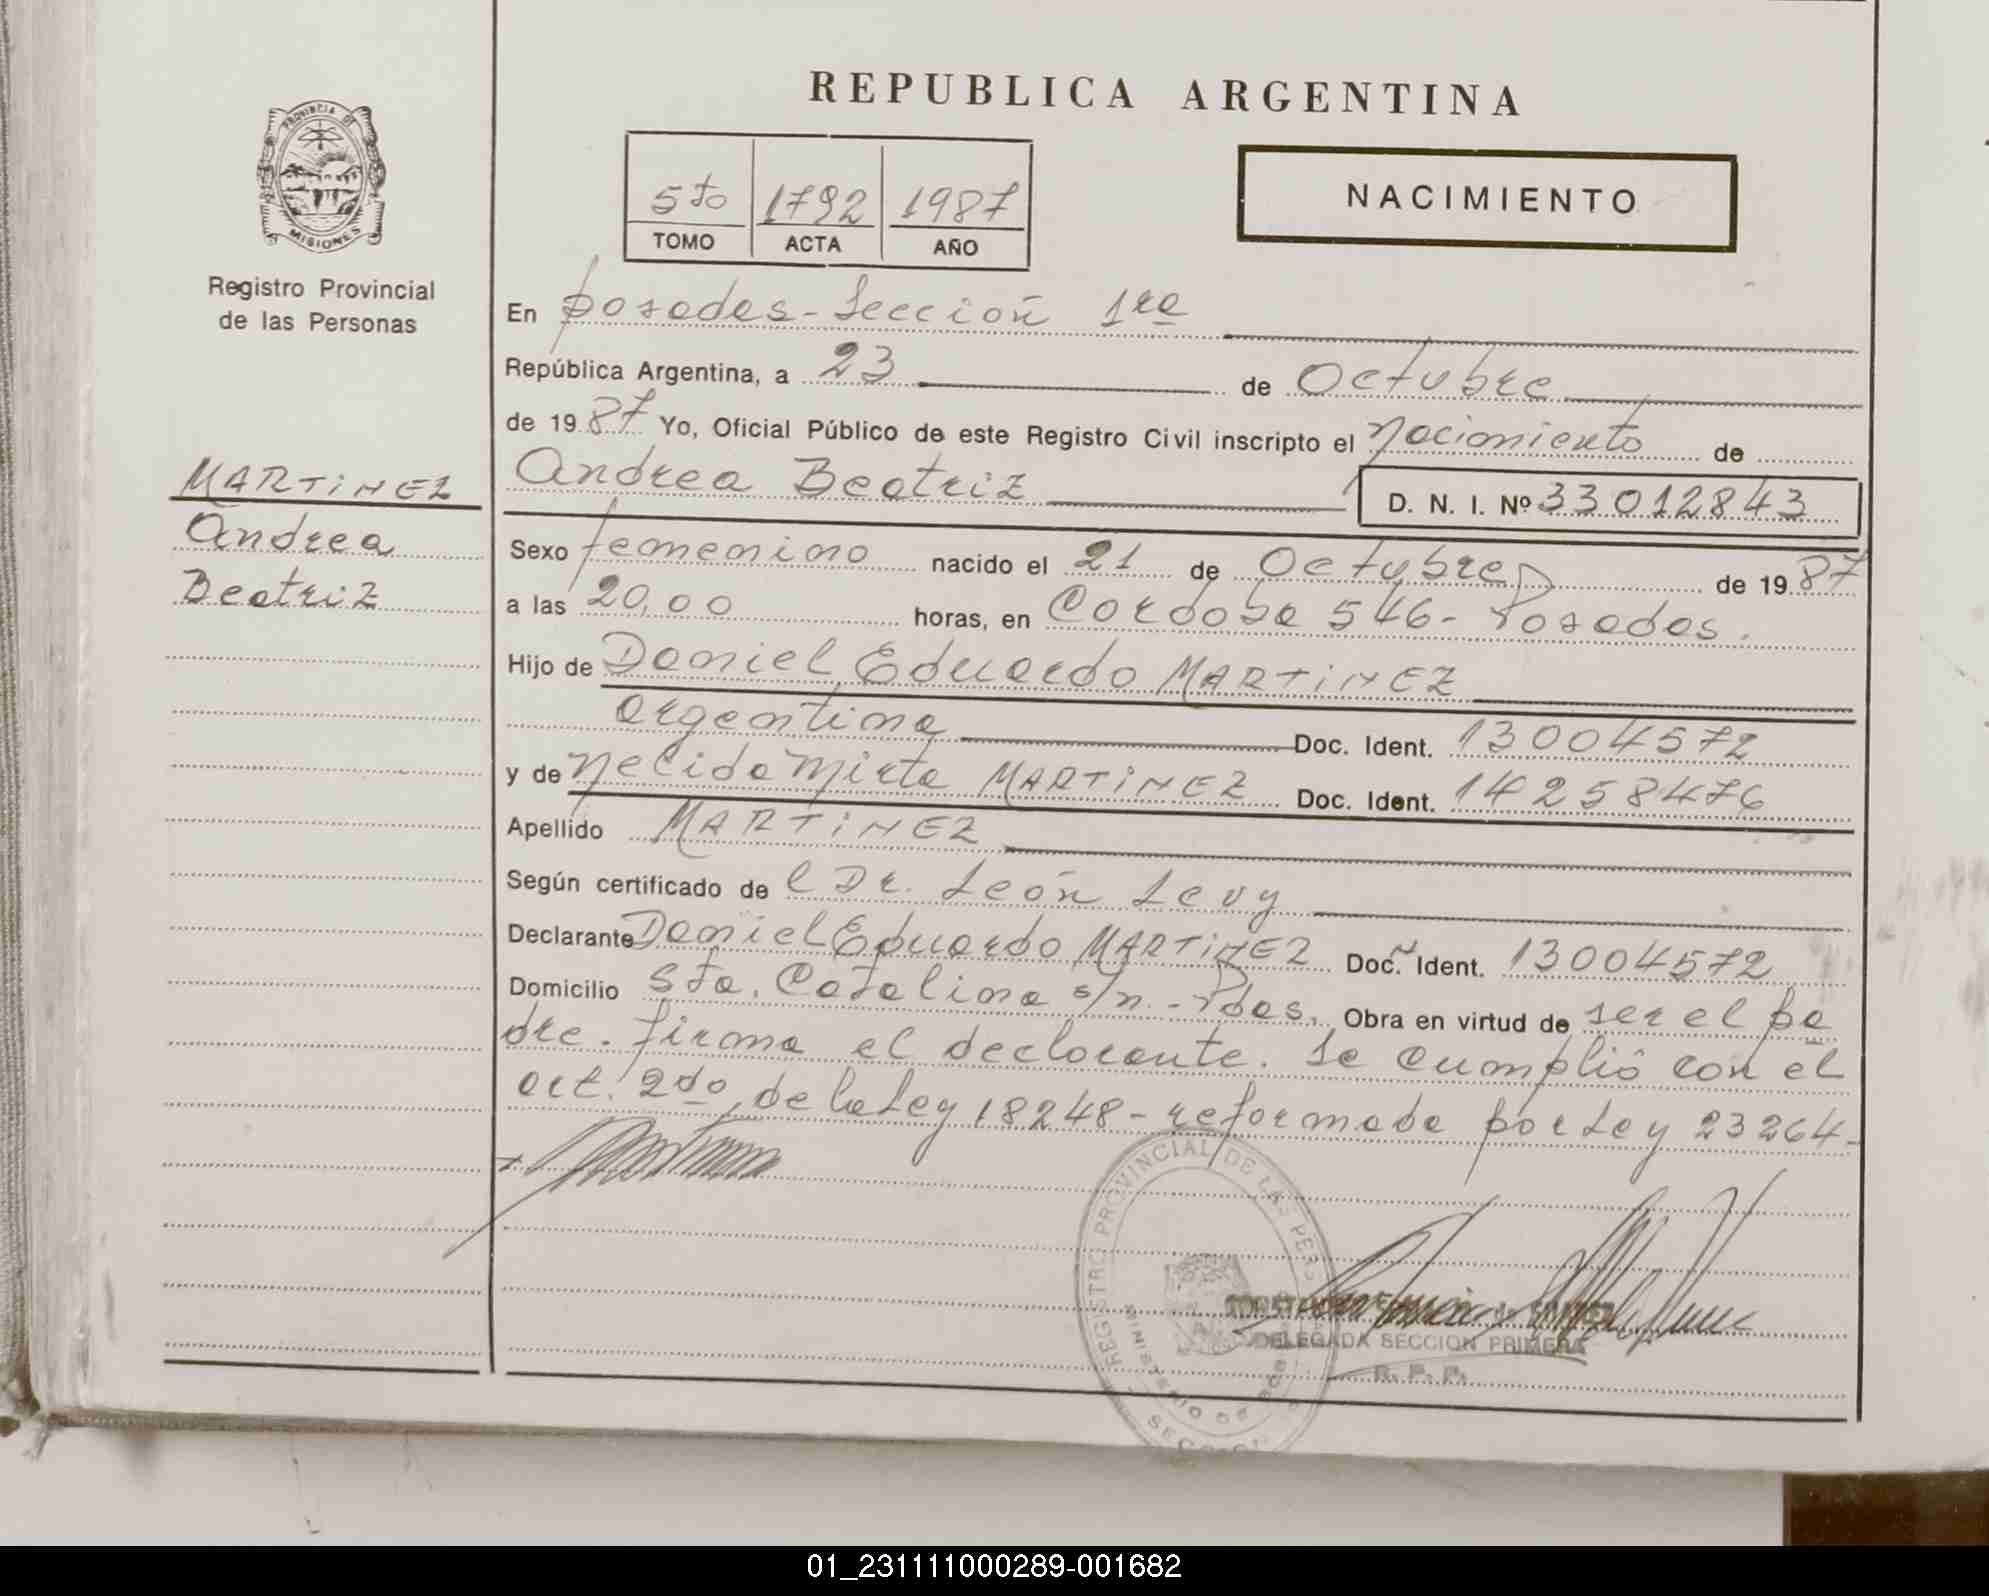 REPUBLICA ARGENTINA
PROVINCIA DE
MISIONES
Registro Provincial
de las Personas
5to 1792 1987
TOMO ACTA AÑO
NACIMIENTO
En posadas - Sección 1ra
República Argentina, a 23 de Octubre
de 1987 Yo, Oficial Público de este Registro Civil inscripto el nacimiento de
MARTINEZ
Andrea
Beatriz
Andrea Beatriz D. N. I. Nº 33012843
Sexo femenino nacido el 21 de Octubre de 1987
a las 20,00 horas, en Cordoba 546 - Posadas.
Hijo de Daniel Eduardo MARTINEZ
argentina Doc. Ident. 13004572
y de Nelida Mirta MARTINEZ Doc. Ident. 14258476
Apellido MARTINEZ
Según certificado de l Dr. León Levy
Declarante Daniel Eduardo MARTINEZ Doc. Ident. 13004572
Domicilio Sta. Catalina s/n. - Pdas. Obra en virtud de ser el pa
dre. firma el declarante. Se cumplió con el
art. 2do, de la Ley 18248 - reformada por Ley 23264 -
REGISTRO PROVINCIAL DE LAS PERS
MINISTERIO DE GOB
SECCION
DELEGADA SECCION PRIMERA
R. P. P.
01_231111000289-001682